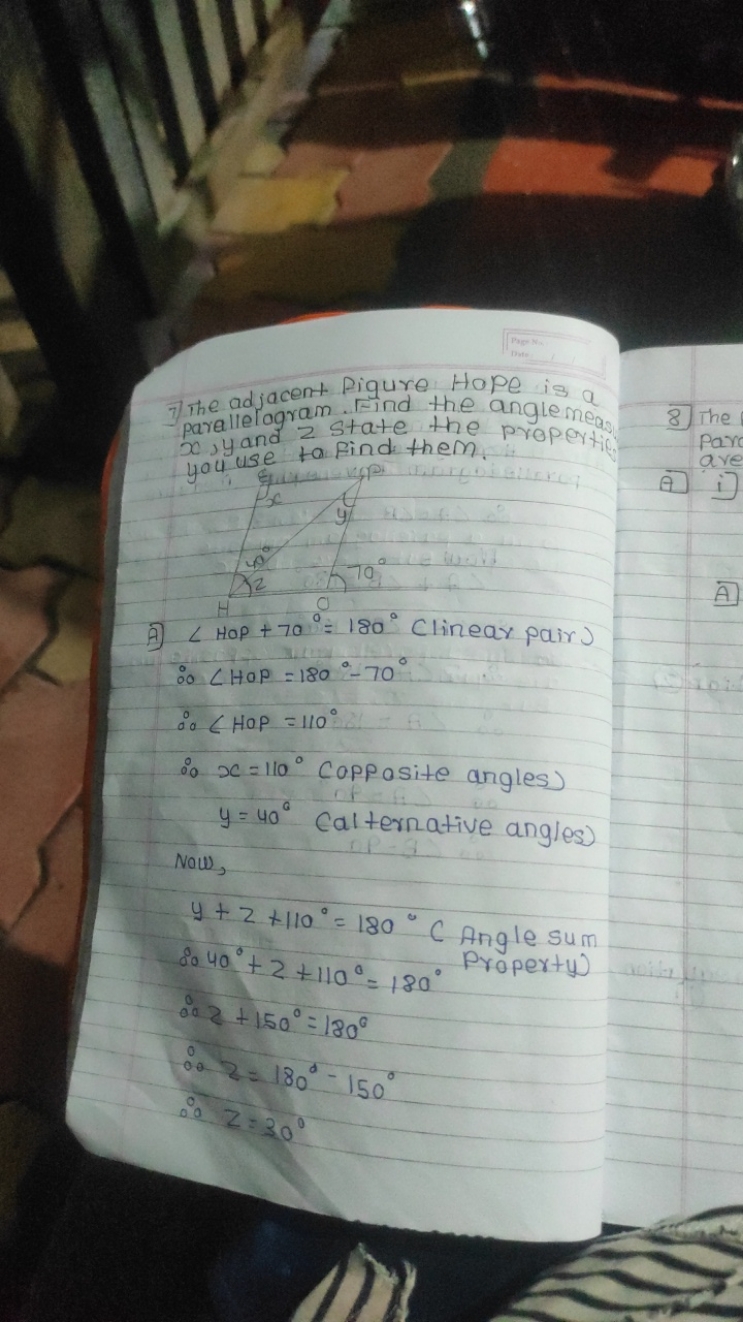 Page No.
Date
7] The adjacent Figure Hope is a
parallelogram. Find the angle meas
x, y and z state the propertie
you use to Find them.
E P
x
y
40°
z 70°
H O
A] ∠ HOP + 70° = 180° (linear pair)
∴ ∠ HOP = 180° - 70°
∴ ∠ HOP = 110°
∴ x = 110° (opposite angles)
y = 40° (alternative angles)
Now,
y + z + 110° = 180° ( Angle sum
Property)
∴ 40° + z + 110° = 180°
∴ z + 150° = 180°
∴ z = 180° - 150°
∴ z = 30°
8] The
Para
are
A] i]
A]